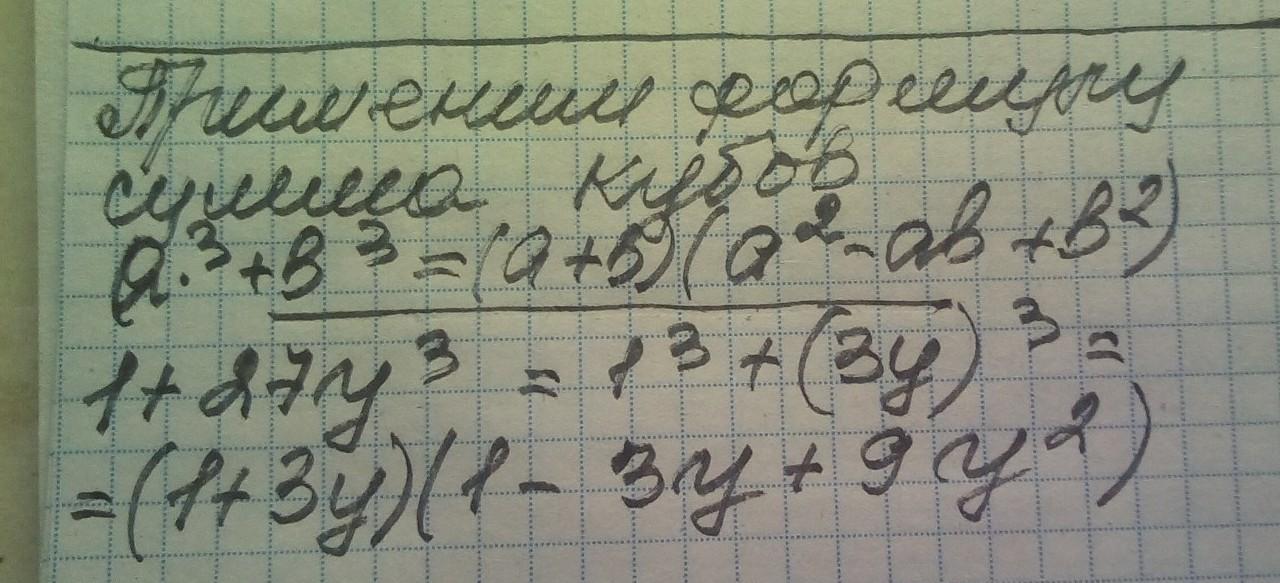 Применим формулу
сумма кубов
a³+b³=(a+b)(a²-ab+b²)
1+27y³ = 1³+(3y)³=
=(1+3y)(1-3y+9y²)